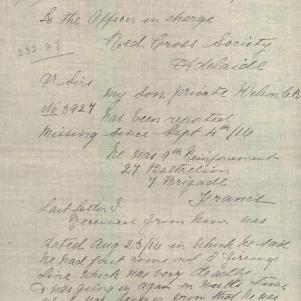 To the Officer in charge
Red Cross Society
232.27
Adelaide
Dr Sirs
my son private
No 3927 has been reported
Missing since Sept 4th/16
he was 9th Reinforcement
27 Battalion
7 Brigade
France
Last Letter I
Received from him was
dated Aug 23/16 in which he said
he had just come out of firing
Line which was very deadly
& was going in again in